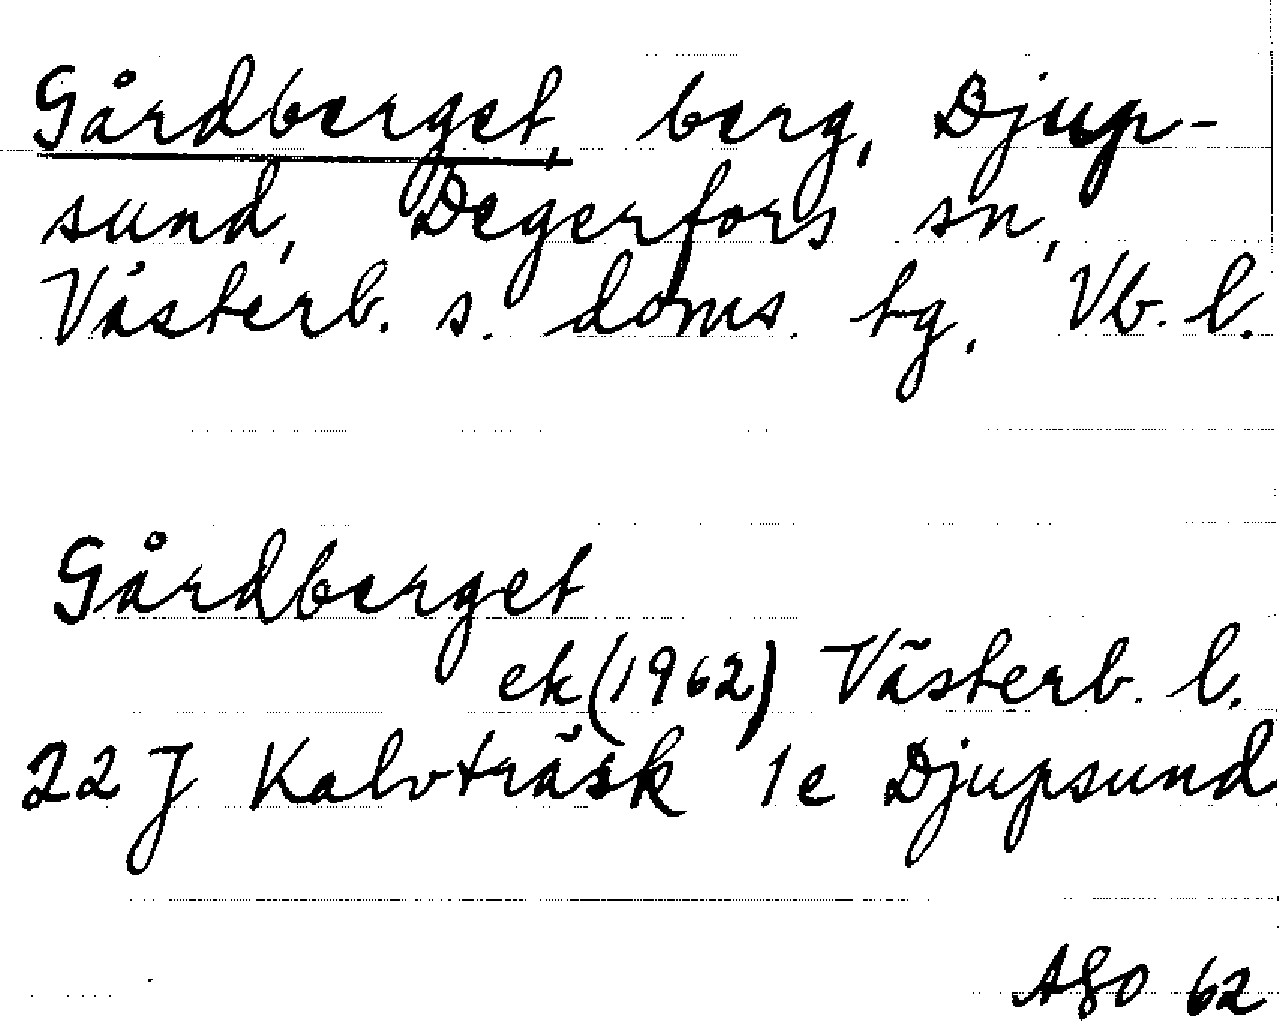 Gårdberget, berg, Djup-
sund, Degerfors sn,
Västerb. s. doms. tg, Vb. l.
Gårdberget
ek (1962) Västerb. l.
22 J Kalvträsk 1e Djupsund
ASO 62